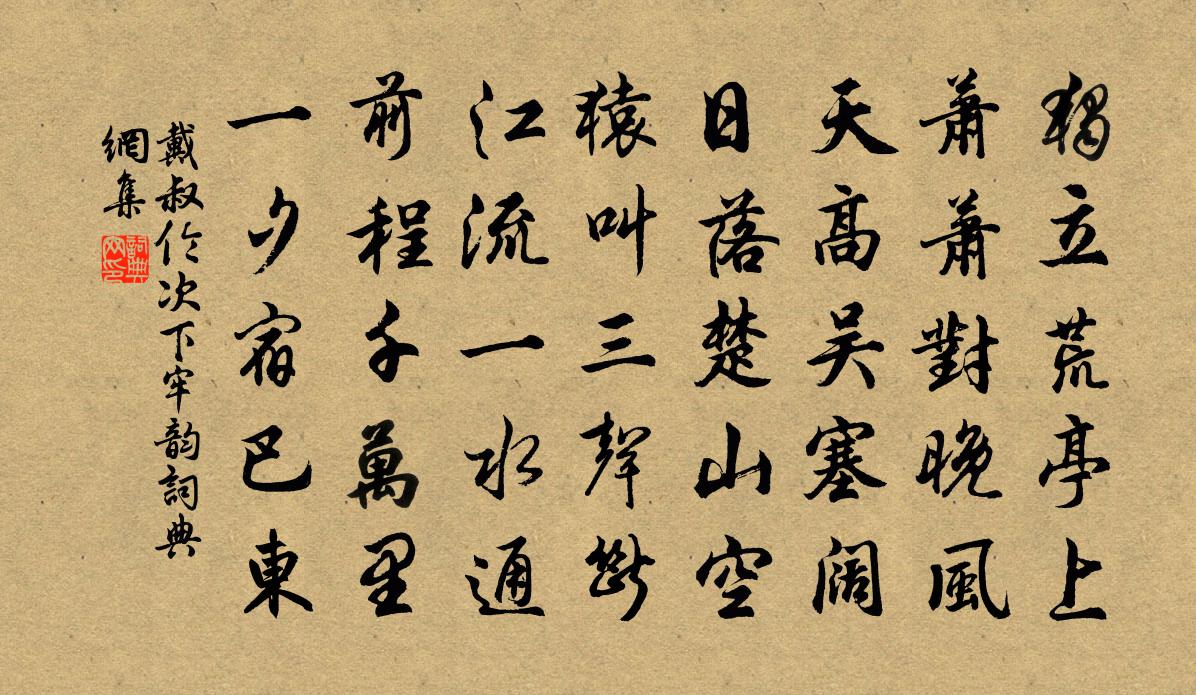 獨立荒亭上
蕭蕭對晚風
天高吴塞闊
日落楚山空
猿叫三聲斷
江流一水通
前程千萬里
一夕宿巴東
戴叔倫次下牢韵詞典
網集
詞典网印